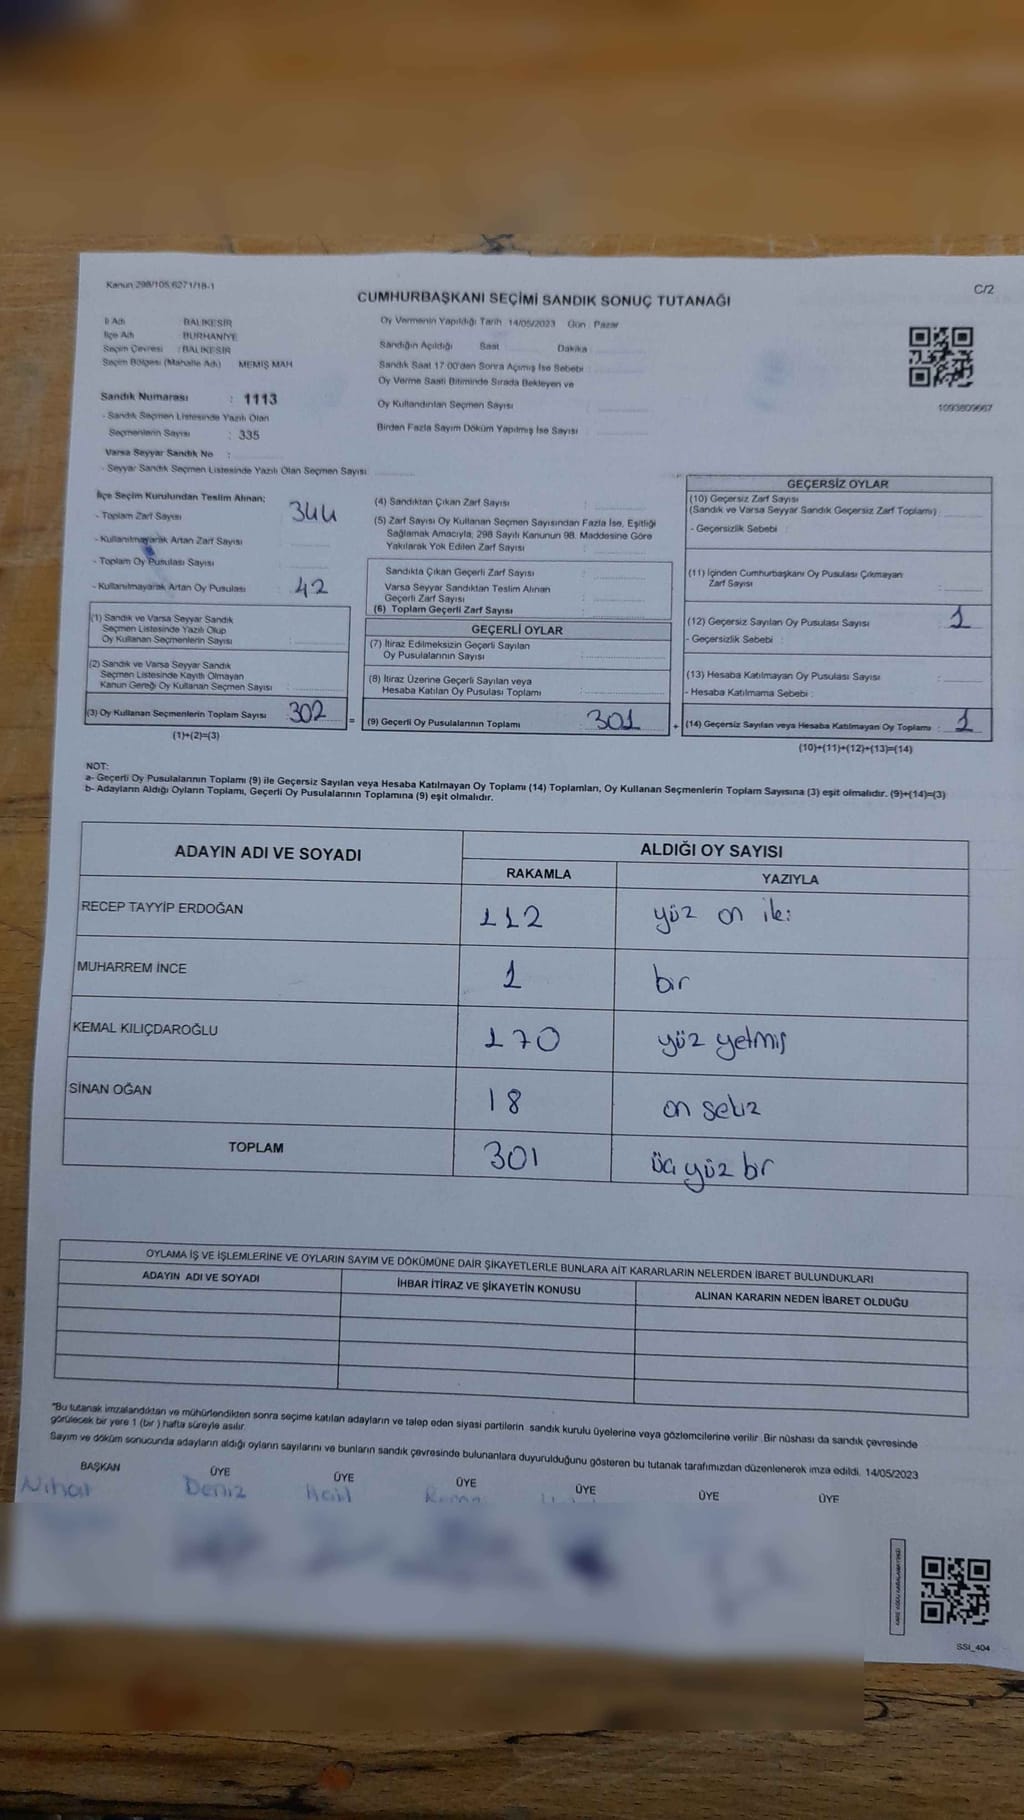 Kanun 298/105,6271/18-1
C/2
CUMHURBAŞKANI SEÇİMİ SANDIK SONUÇ TUTANAĞI
İl Adı : BALIKESİR
İlçe Adı : BURHANİYE
Seçim Çevresi : BALIKESİR
Seçim Bölgesi (Mahalle Adı) MEMİŞ MAH
Sandık Numarası : 1113
- Sandık Seçmen Listesinde Yazılı Olan
Seçmenlerin Sayısı : 335
Varsa Seyyar Sandık No :
- Seyyar Sandık Seçmen Listesinde Yazılı Olan Seçmen Sayısı
Oy Vermenin Yapıldığı Tarih : 14/05/2023 Gün : Pazar
Sandığın Açıldığı Saat Dakika
Sandık Saat 17:00'den Sonra Açılmış İse Sebebi :
Oy Verme Saati Bitiminde Sırada Bekleyen ve
Oy Kullandırılan Seçmen Sayısı :
Birden Fazla Sayım Döküm Yapılmış İse Sayısı :
1093809667
İlçe Seçim Kurulundan Teslim Alınan;
- Toplam Zarf Sayısı : 344
- Kullanılmayarak Artan Zarf Sayısı :
- Toplam Oy Pusulası Sayısı :
- Kullanılmayarak Artan Oy Pusulası : 42
(1) Sandık ve Varsa Seyyar Sandık
Seçmen Listesinde Yazılı Olup
Oy Kullanan Seçmenlerin Sayısı :
(2) Sandık ve Varsa Seyyar Sandık
Seçmen Listesinde Kayıtlı Olmayan
Kanun Gereği Oy Kullanan Seçmen Sayısı :
(3) Oy Kullanan Seçmenlerin Toplam Sayısı : 302 =
(1)+(2)=(3)
(4) Sandıktan Çıkan Zarf Sayısı :
(5) Zarf Sayısı Oy Kullanan Seçmen Sayısından Fazla İse, Eşitliği
Sağlamak Amacıyla; 298 Sayılı Kanunun 98. Maddesine Göre
Yakılarak Yok Edilen Zarf Sayısı :
Sandıkta Çıkan Geçerli Zarf Sayısı :
Varsa Seyyar Sandıktan Teslim Alınan
Geçerli Zarf Sayısı :
(6) Toplam Geçerli Zarf Sayısı :
GEÇERLİ OYLAR
(7) İtiraz Edilmeksizin Geçerli Sayılan
Oy Pusulalarının Sayısı :
(8) İtiraz Üzerine Geçerli Sayılan veya
Hesaba Katılan Oy Pusulası Toplamı :
(9) Geçerli Oy Pusulalarının Toplamı : 301 +
GEÇERSİZ OYLAR
(10) Geçersiz Zarf Sayısı
(Sandık ve Varsa Seyyar Sandık Geçersiz Zarf Toplamı) :
- Geçersizlik Sebebi :
(11) İçinden Cumhurbaşkanı Oy Pusulası Çıkmayan
Zarf Sayısı :
(12) Geçersiz Sayılan Oy Pusulası Sayısı : 1
- Geçersizlik Sebebi :
(13) Hesaba Katılmayan Oy Pusulası Sayısı :
- Hesaba Katılmama Sebebi :
(14) Geçersiz Sayılan veya Hesaba Katılmayan Oy Toplamı : 1
(10)+(11)+(12)+(13)=(14)
NOT:
a- Geçerli Oy Pusulalarının Toplamı (9) ile Geçersiz Sayılan veya Hesaba Katılmayan Oy Toplamı (14) Toplamları, Oy Kullanan Seçmenlerin Toplam Sayısına (3) eşit olmalıdır. (9)+(14)=(3)
b- Adayların Aldığı Oyların Toplamı, Geçerli Oy Pusulalarının Toplamına (9) eşit olmalıdır.
ADAYIN ADI VE SOYADI ALDIĞI OY SAYISI
RAKAMLA YAZIYLA
RECEP TAYYİP ERDOĞAN 112 yüz on iki
MUHARREM İNCE 1 bir
KEMAL KILIÇDAROĞLU 170 yüz yetmiş
SİNAN OĞAN 18 on sekiz
TOPLAM 301 üç yüz bir
OYLAMA İŞ VE İŞLEMLERİNE VE OYLARIN SAYIM VE DÖKÜMÜNE DAİR ŞİKAYETLERLE BUNLARA AİT KARARLARIN NELERDEN İBARET BULUNDUKLARI
ADAYIN ADI VE SOYADI İHBAR İTİRAZ VE ŞİKAYETİN KONUSU ALINAN KARARIN NEDEN İBARET OLDUĞU
"Bu tutanak imzalandıktan ve mühürlendikten sonra seçime katılan adayların ve talep eden siyasi partilerin sandık kurulu üyelerine veya gözlemcilerine verilir. Bir nüshası da sandık çevresinde
görülecek bir yere 1 (bir ) hafta süreyle asılır.
Sayım ve döküm sonucunda adayların aldığı oyların sayılarını ve bunların sandık çevresinde bulunanlara duyurulduğunu gösteren bu tutanak tarafımızdan düzenlenerek imza edildi. 14/05/2023
BAŞKAN ÜYE ÜYE ÜYE ÜYE ÜYE ÜYE
Nihat Deniz Halil
SSI_404